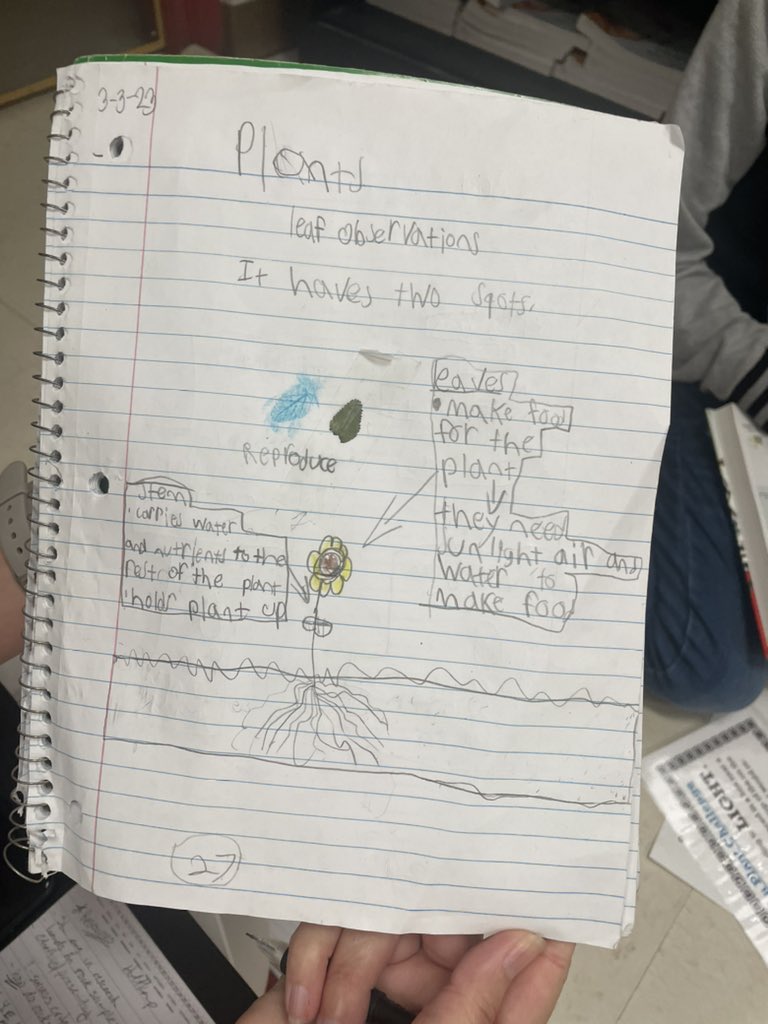 3-3-23
Plants
leaf observations
It haves two sqots.
Reproduce
leaves
• make foof
for the
plant
they need
sunlight air and
water to
make foof
Stem
• carries water
and nutrients to the
Rest of the plant
• holds plant up
27
LIGHT